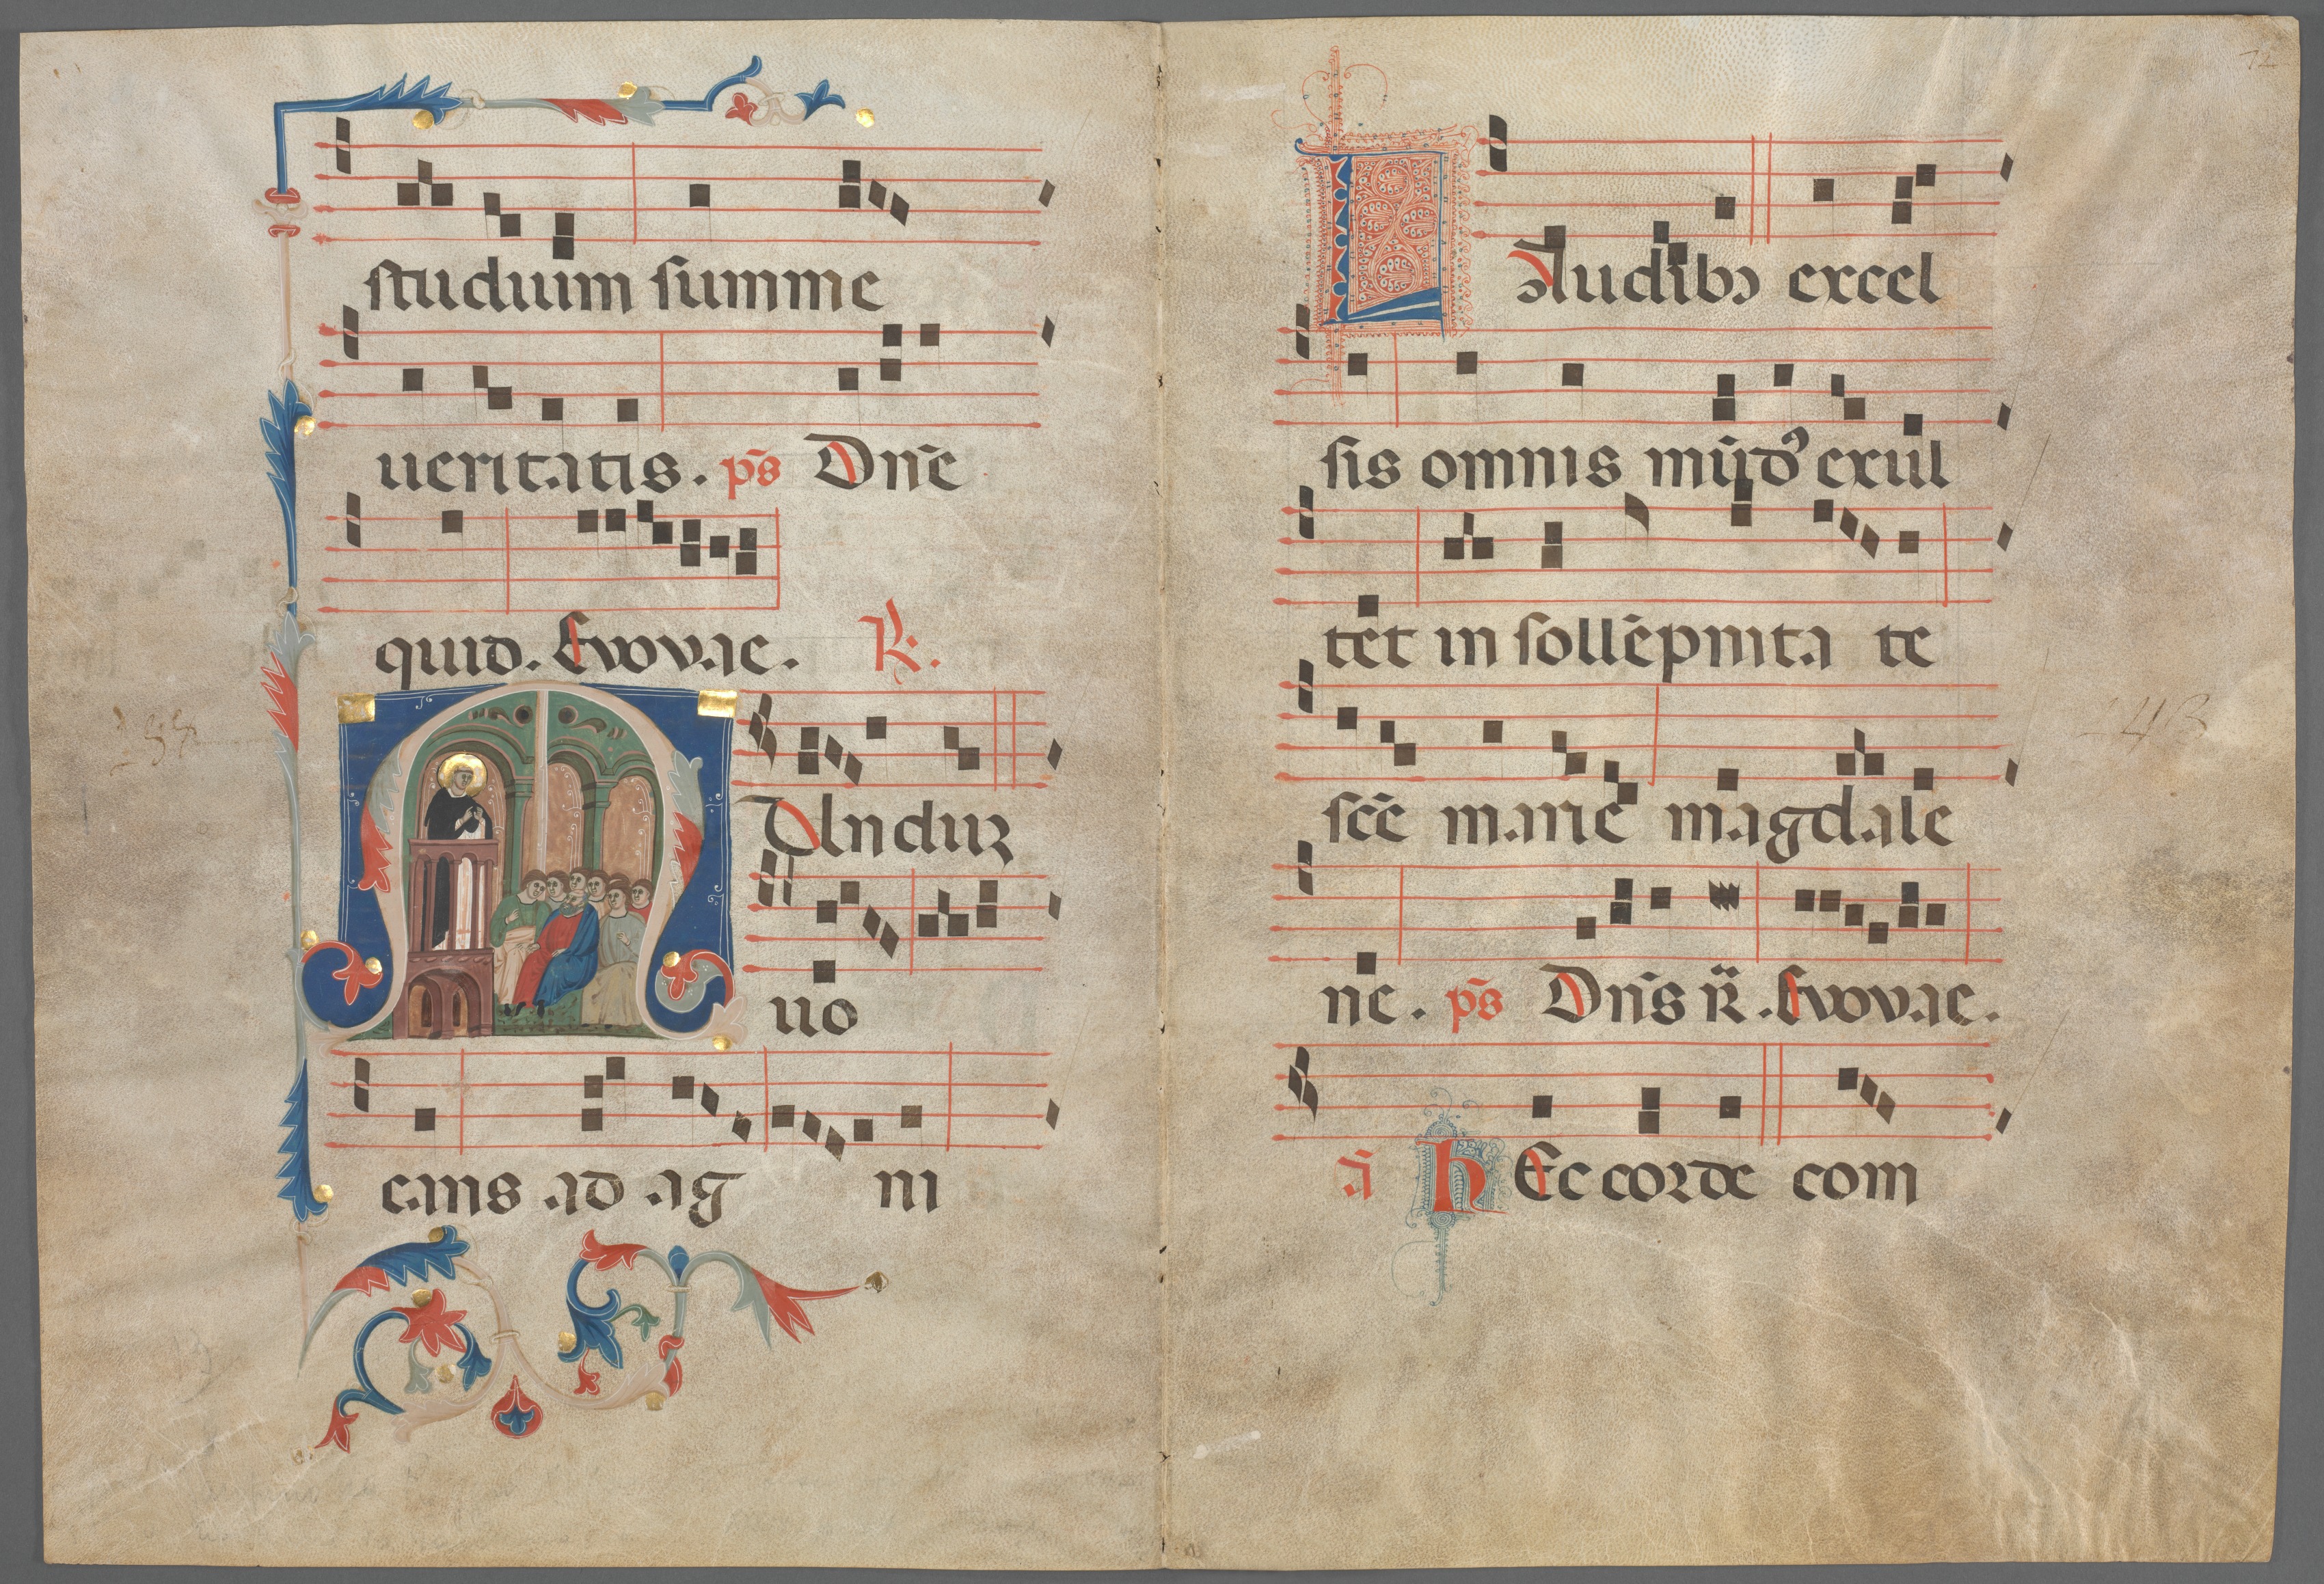 studium summe
ueritatis. p̄s Dn̄e
quid. Evovae. R.
MUndum
uo
cans ad ag ni
LAudibꝫ excel
sis omnis mūdꝰ exul
tet in sollēpnita te
sc̄e marie magdale
ne. p̄s Dn̄s r̄. Evovae.
ā hEc corde com